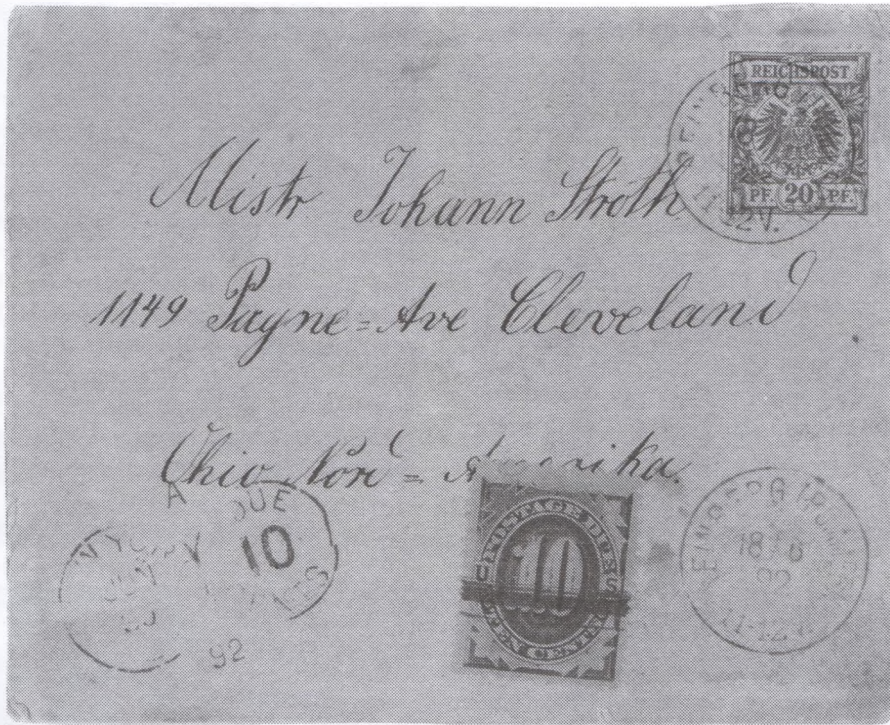 REICHSPOST
PF. 20 PF.
11-12V.
Mistr Johann Stroth
1149 Payne=Ave Cleveland
Ohio Nord=Amerika.
DUE
10
N.Y.
JUN
92
POSTAGE DUE
10
TEN CENTS
18 6
92
11-12